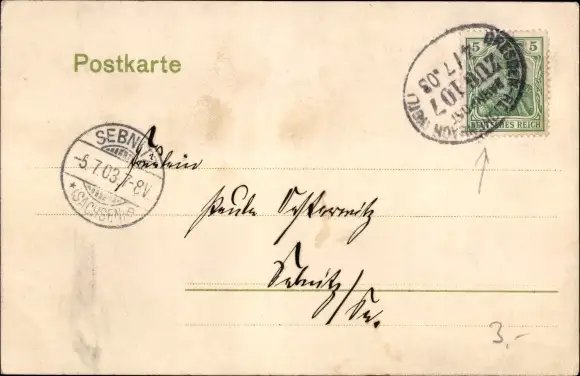 Postkarte
5 5
DEUTSCHES REICH
ZUG 107
7.03
SEBNITZ
-5.7.03.7-8V
*(SACHSEN)*
Fräulein
Paula
Sebnitz/Sa.
3,-